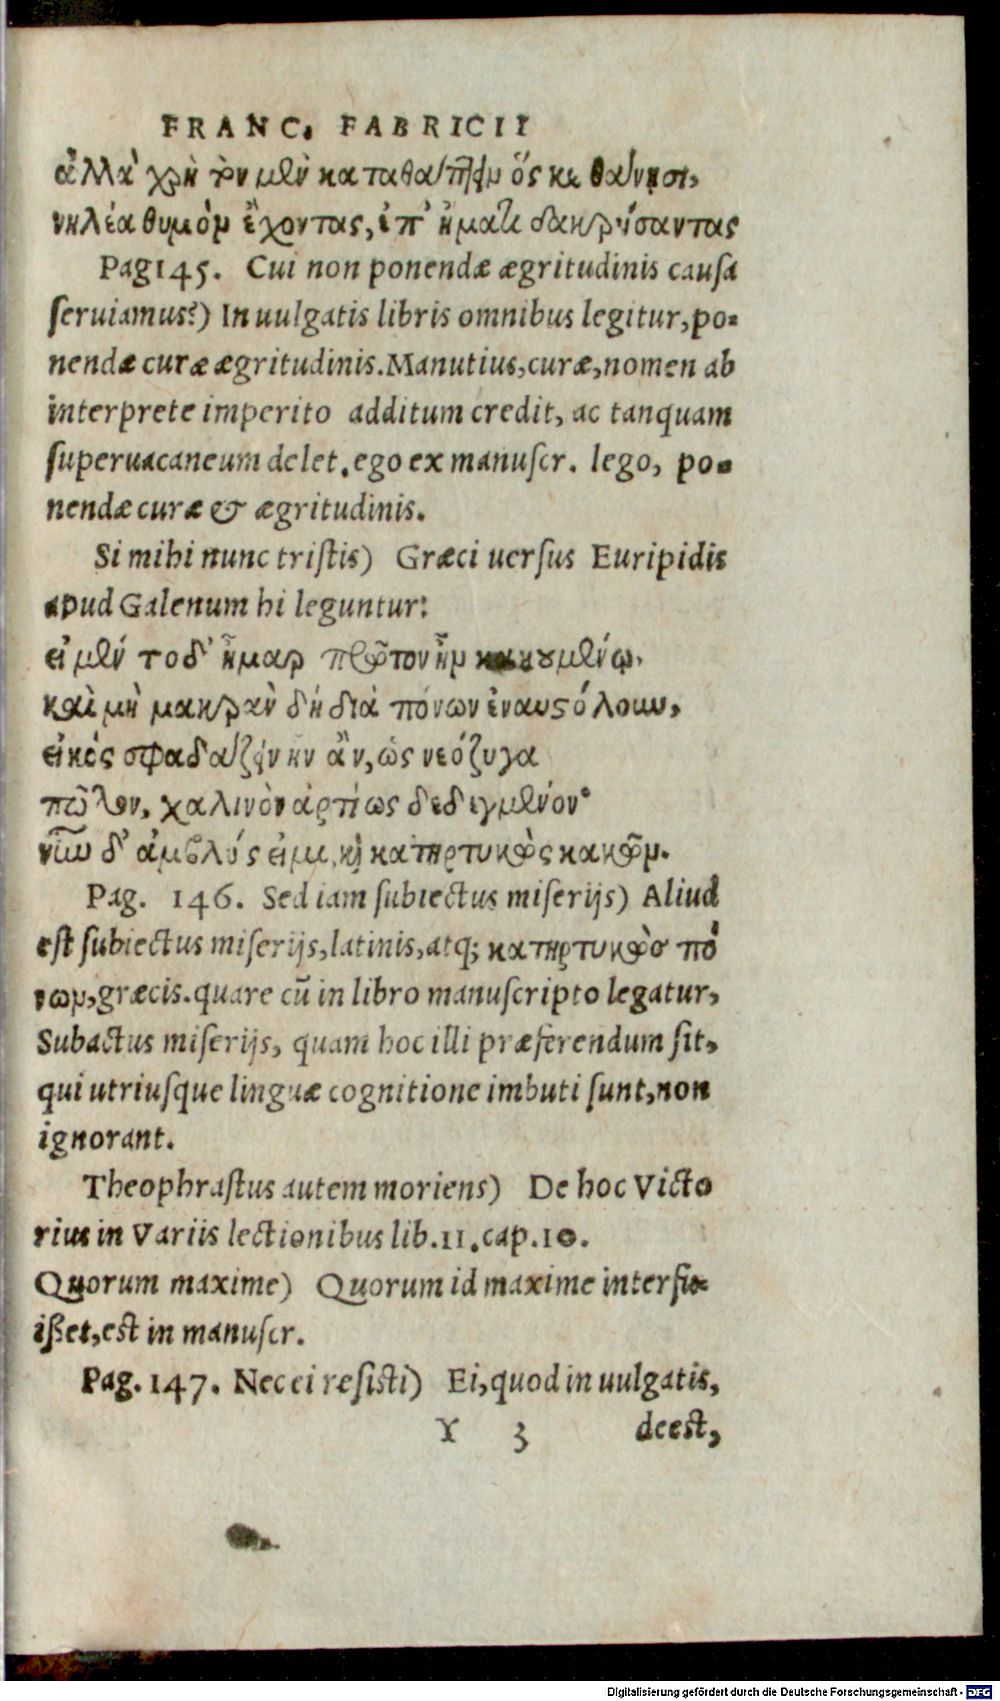 FRANC. FABRICII
ἀλλὰ χρὴ τὸν μὲν καταθάπτειν ὅς κε θάνησι,
νηλέα θυμὸν ἔχοντας, ἐπ' ἤματι δακρύσαντας
Pag145. Cui non ponendæ ægritudinis causa
seruiamus?) In uulgatis libris omnibus legitur, po-
nendæ curæ ægritudinis. Manutius, curæ, nomen ab
interprete imperito additum credit, ac tanquam
superuacaneum delet. ego ex manuscr. lego, po-
nendæ curæ & ægritudinis.
Si mihi nunc tristis) Græci uersus Euripidis
apud Galenum hi leguntur:
εἰ μὲν τοδ' ἦμαρ πρῶτον ἦν κακουμένῳ,
καὶ μὴ μακρὰν δὴ διὰ πόνων ἐναυστόλουν,
εἰκὸς σφαδάζειν ἦν ἂν, ὡς νεόζυγα
πῶλον, χαλινὸν ἀρτίως δεδεγμένον·
νῦν δ' ἀμβλύς εἰμι, καὶ κατηρτυκὼς κακῶν.
Pag. 146. Sed iam subiectus miserijs) Aliud
est subiectus miserijs, latinis, atq; κατηρτυκὼσ πό
νων, græcis. quare cũ in libro manuscripto legatur,
Subactus miserijs, quam hoc illi præferendum sit,
qui utriusque linguæ cognitione imbuti sunt, non
ignorant.
Theophrastus autem moriens) De hoc Victo
rius in Variis lectionibus lib. 11. cap. 10.
Quorum maxime) Quorum id maxime interfu-
ißet, est in manuscr.
Pag. 147. Nec ei resisti) Ei, quod in uulgatis,
Y 3 deest,
Digitalisierung gefördert durch die Deutsche Forschungsgemeinschaft - DFG